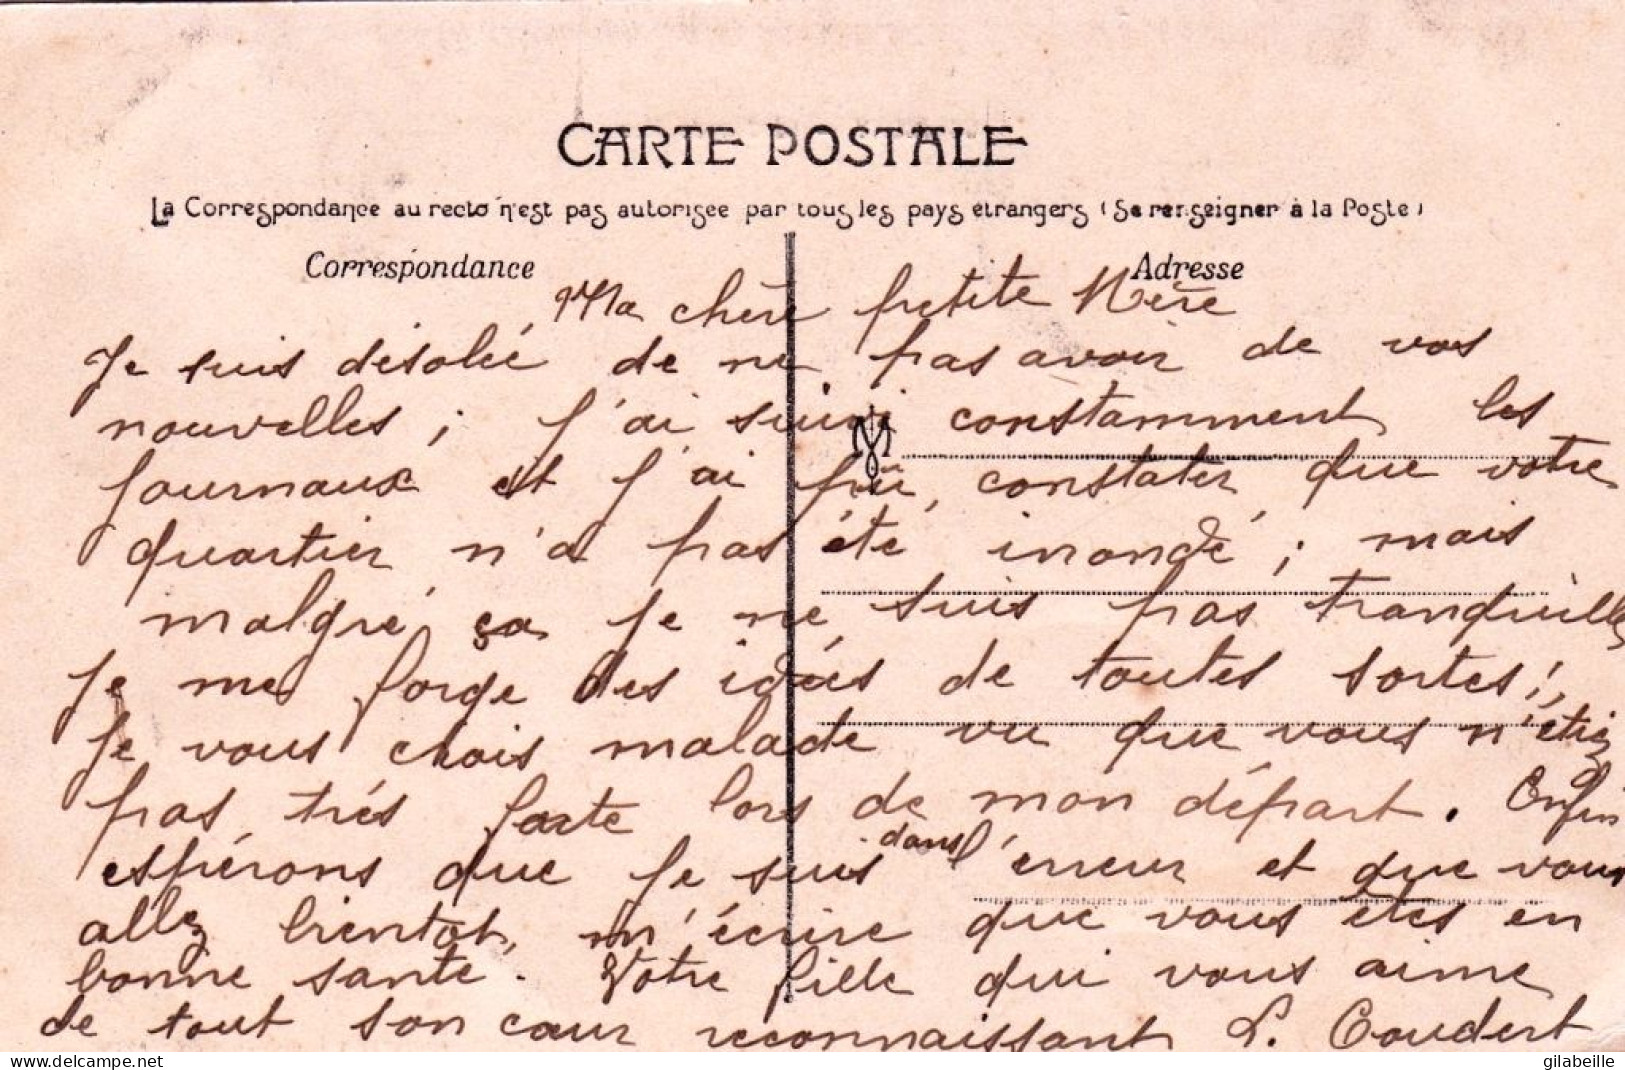 CARTE POSTALE
La Correspondance au recto n'est pas autorisee par tous les pays etrangers (Se renseigner à la Poste)
Correspondance
Adresse
Ma chère petite Mère
Je suis désolée de ne pas avoir de vos
nouvelles ; j'ai suivi constamment les
journaux et j'ai pû, constater que votre
quartier n'a pas été inondé ; mais
malgré ça je ne suis pas tranquille
je me forge des idées de toutes sortes ;,
je vous crois malade vu que vous n'étiez
pas très forte lors de mon départ. Enfin
espérons que je suis dans l'erreur et que vous
allez bientot, m'écrire que vous êtes en
bonne santé. Votre fille qui vous aime
de tout son cœur reconnaissant L. Coudert
delcampe.net
gilabeille